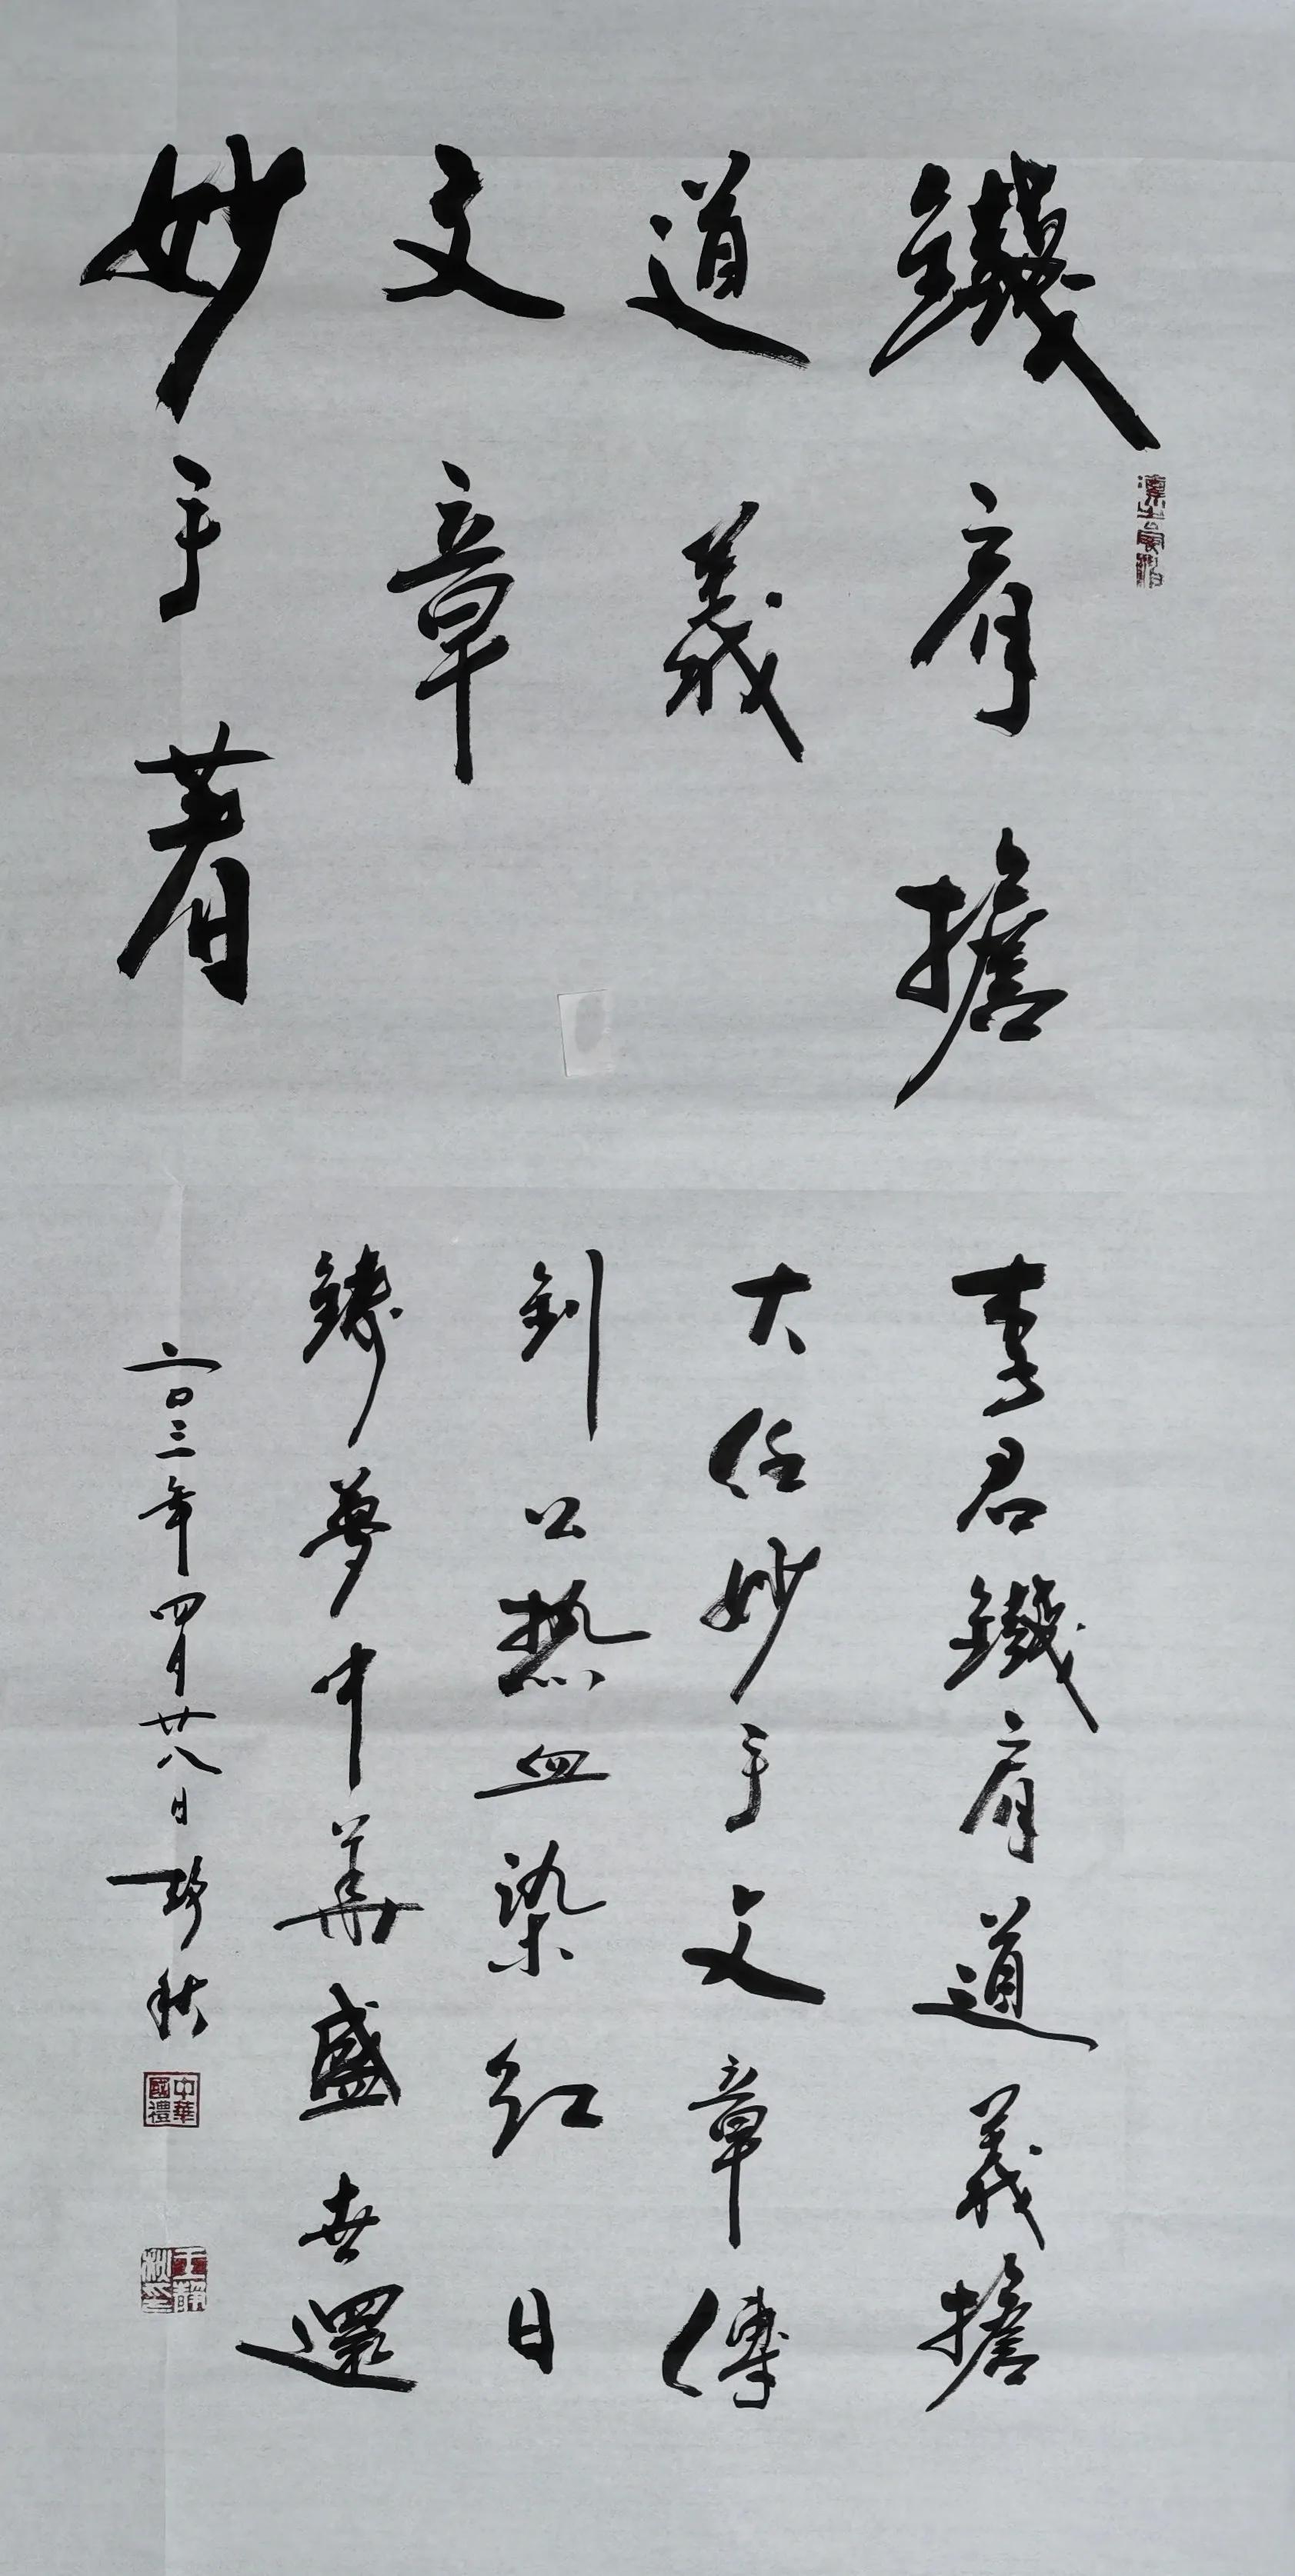 鐵肩擔
道義
文章
妙手著
李君鐵肩道義擔
大任妙手文章傳
剑公熱血染红日
鑄夢中華盛世還
二〇二三年四月廿八日 静秋
中華國禮
王靜秋印